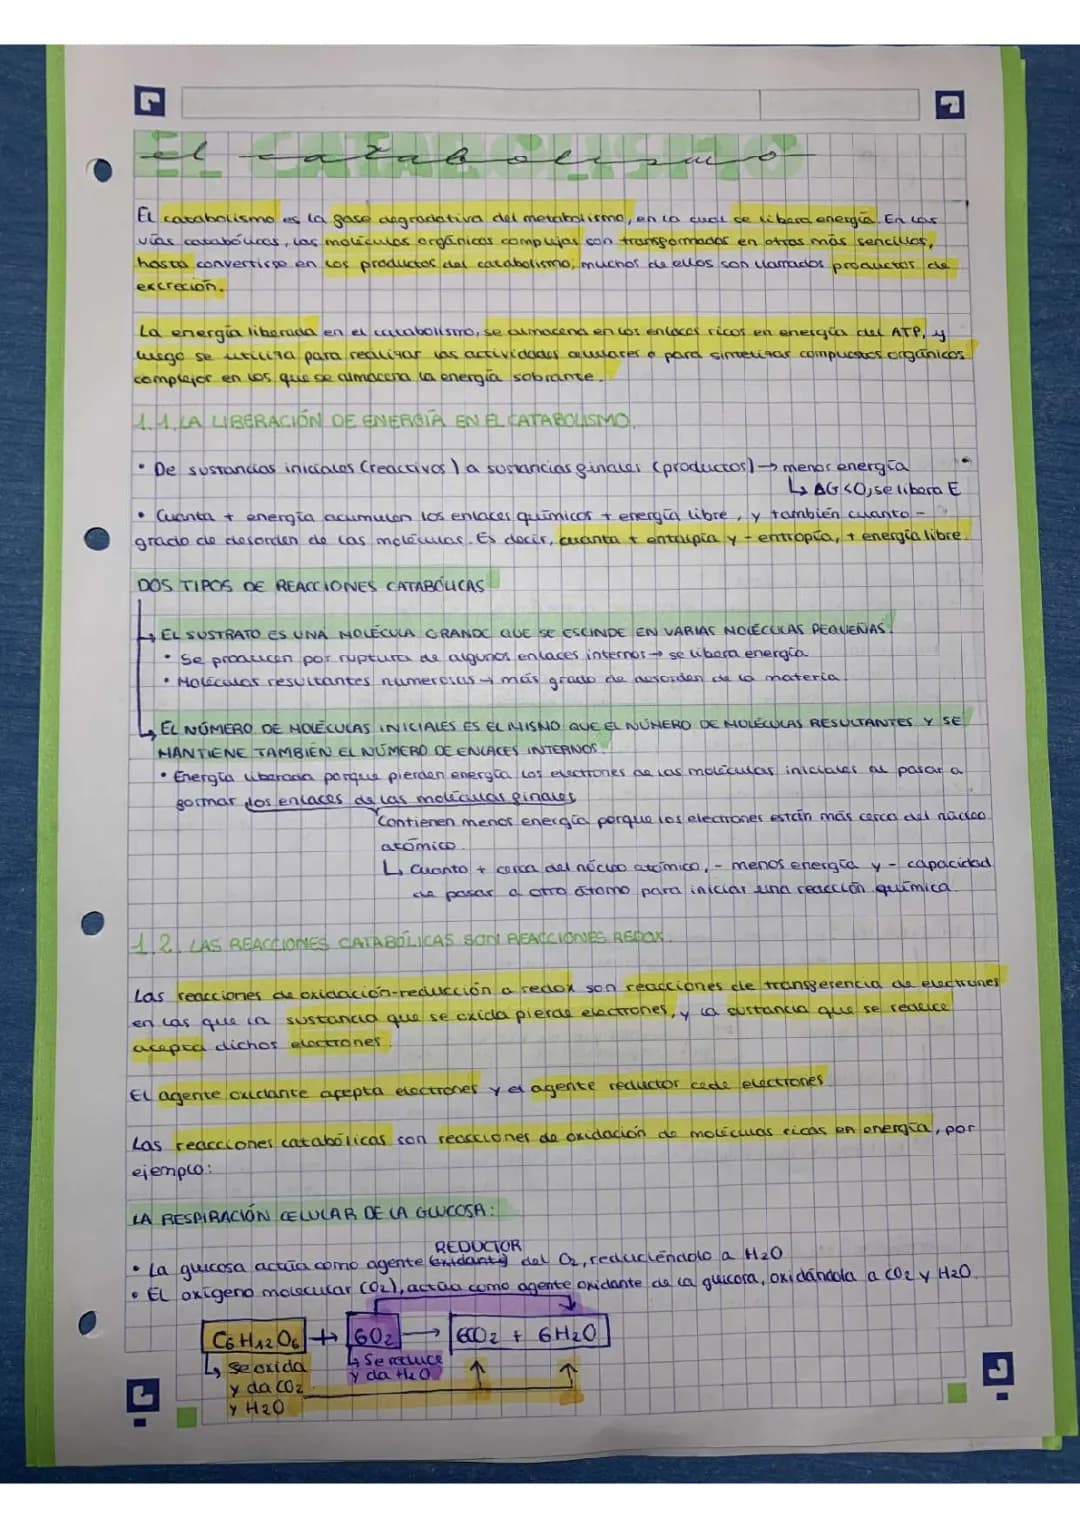 El catabolismo
El catabolismo es la fase degradativa del metabolismo, en la cual se libera energía. En las
vías catabólicas, las moléculas orgánicas complejas son transformadas en otras más sencillas,
hasta convertirse en los productos del catabolismo, muchos de ellos son llamados productos de
excreción.
La energía liberada en el catabolismo, se almacena en los enlaces ricos en energía del ATP, y
luego se utiliza para realizar las actividades celulares o para sintetizar compuestos orgánicos
complejos en los que se almacena la energía sobrante.
1.1. LA LIBERACIÓN DE ENERGÍA EN EL CATABOLISMO.
• De sustancias iniciales (reactivos) a sustancias finales (productos) → menor energía
↳ ΔG<0, se libera E
• Cuanta + energía acumulen los enlaces químicos + energía libre, y también cuanto -
grado de desorden de las moléculas. Es decir, cuanta + entalpía y - entropía, + energía libre.
DOS TIPOS DE REACCIONES CATABÓLICAS
↳ EL SUSTRATO ES UNA MOLÉCULA GRANDE QUE SE ESCINDE EN VARIAS MOLÉCULAS PEQUEÑAS.
• Se producen por ruptura de algunos enlaces internos → se libera energía
• Moléculas resultantes numerosas → más grado de desorden de la materia.
↳ EL NÚMERO DE MOLÉCULAS INICIALES ES EL MISMO QUE EL NÚMERO DE MOLÉCULAS RESULTANTES Y SE
MANTIENE TAMBIÉN EL NÚMERO DE ENLACES INTERNOS.
• Energía liberada porque pierden energía los electrones de las moléculas iniciales al pasar a
formar los enlaces de las moléculas finales
Contienen menos energía porque los electrones están más cerca del núcleo
atómico.
↳ Cuanto + cerca del núcleo atómico, - menos energía y - capacidad
de pasar a otro átomo para iniciar una reacción química.
1.2. LAS REACCIONES CATABÓLICAS SON REACCIONES REDOX.
Las reacciones de oxidación-reducción o redox son reacciones de transferencia de electrones
en las que la sustancia que se oxida pierde electrones, y la sustancia que se reduce
acepta dichos electrones.
El agente oxidante acepta electrones y el agente reductor cede electrones.
Las reacciones catabólicas son reacciones de oxidación de moléculas ricas en energía, por
ejemplo:
LA RESPIRACIÓN CELULAR DE LA GLUCOSA:
REDUCTOR
• La glucosa actúa como agente (oxidante) del O2, reduciéndolo a H2O
• El oxígeno molecular (O2), actúa como agente oxidante de la glucosa, oxidándola a CO2 y H2O.
C6H12O6 + 6O2 → 6CO2 + 6H2O
↳ Se oxida
y da CO2
y H2O
↳ Se reduce
y da H2O